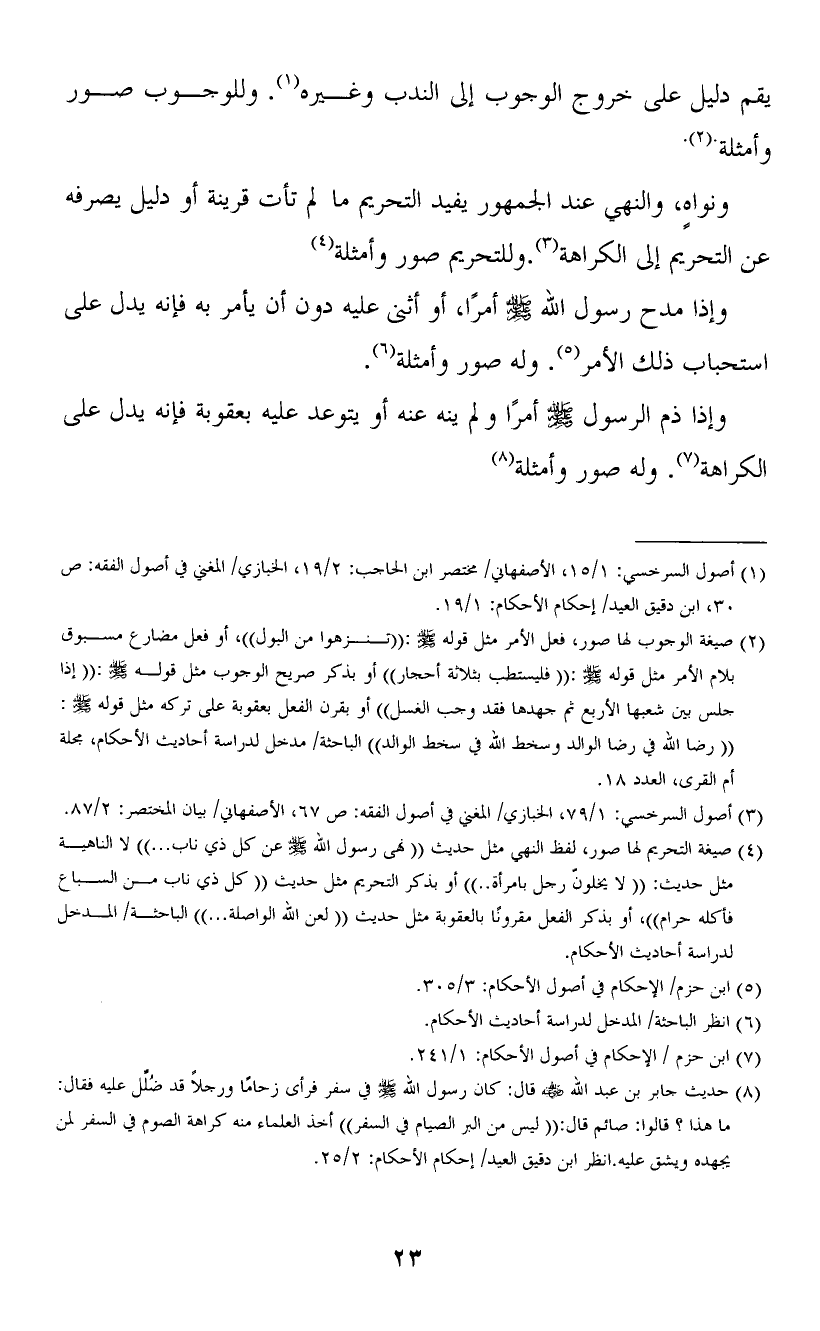 يقم دليل على خروج الوجوب إلى الندب وغـــيره(١). وللوجـــوب صـــور
وأمثلة.(٢).
ونواهٍ، والنهي عند الجمهور يفيد التحريم ما لم تأت قرينة أو دليل يصرفه
عن التحريم إلى الكراهة(٣).وللتحريم صور وأمثلة(٤)
وإذا مدح رسول الله ﷺ أمرًا، أو أثنى عليه دون أن يأمر به فإنه يدل على
استحباب ذلك الأمر(٥). وله صور وأمثلة(٦).
وإذا ذم الرسول ﷺ أمرًا و لم ينه عنه أو يتوعد عليه بعقوبة فإنه يدل على
الكراهة(٧). وله صور وأمثلة(٨)
(١) أصول السرخسي: ١٥/١، الأصفهاني/ مختصر ابن الحاجب: ١٩/٢، الخبازي/ المغني في أصول الفقه: ص
٣٠، ابن دقيق العيد/ إحكام الأحكام: ١٩/١.
(٢) صيغة الوجوب لها صور، فعل الأمر مثل قوله ﷺ :((تـــنـــزهوا من البول))، أو فعل مضارع مســـبوق
بلام الأمر مثل قوله ﷺ :(( فليستطب بثلاثة أحجار)) أو بذكر صريح الوجوب مثل قولـــه ﷺ :(( إذا
جلس بين شعبها الأربع ثم جهدها فقد وجب الغسل)) أو بقرن الفعل بعقوبة على تركه مثل قوله ﷺ :
(( رضا الله في رضا الوالد وسخط الله في سخط الوالد)) الباحثة/ مدخل لدراسة أحاديث الأحكام، مجلة
أم القرى، العدد ١٨.
(٣) أصول السرخسي: ٧٩/١، الخبازي/ المغني في أصول الفقه: ص ٦٧، الأصفهاني/ بيان المختصر: ٨٧/٢.
(٤) صيغة التحريم لها صور، لفظ النهي مثل حديث (( نهى رسول الله ﷺ عن كل ذي ناب...)) لا الناهيـــة
مثل حديث: (( لا يخلونّ رجل بامرأة..)) أو بذكر التحريم مثل حديث (( كل ذي ناب مـــن الســـباع
فأكله حرام))، أو بذكر الفعل مقرونًا بالعقوبة مثل حديث (( لعن الله الواصلة...)) الباحثـــة/ المـــدخل
لدراسة أحاديث الأحكام.
(٥) ابن حزم/ الإحكام في أصول الأحكام: ٣٠٥/٣.
(٦) انظر الباحثة/ المدخل لدراسة أحاديث الأحكام.
(٧) ابن حزم / الإحكام في أصول الأحكام: ٢٤١/١.
(٨) حديث جابر بن عبد الله ﷺ قال: كان رسول الله ﷺ في سفر فرأى زحامًا ورجلاً قد ضُلِّل عليه فقال:
ما هذا ؟ قالوا: صائم قال:(( ليس من البر الصيام في السفر)) أخذ العلماء منه كراهة الصوم في السفر لمن
يجهده ويشق عليه.انظر ابن دقيق العيد/ إحكام الأحكام: ٢٥/٢.
٢٣